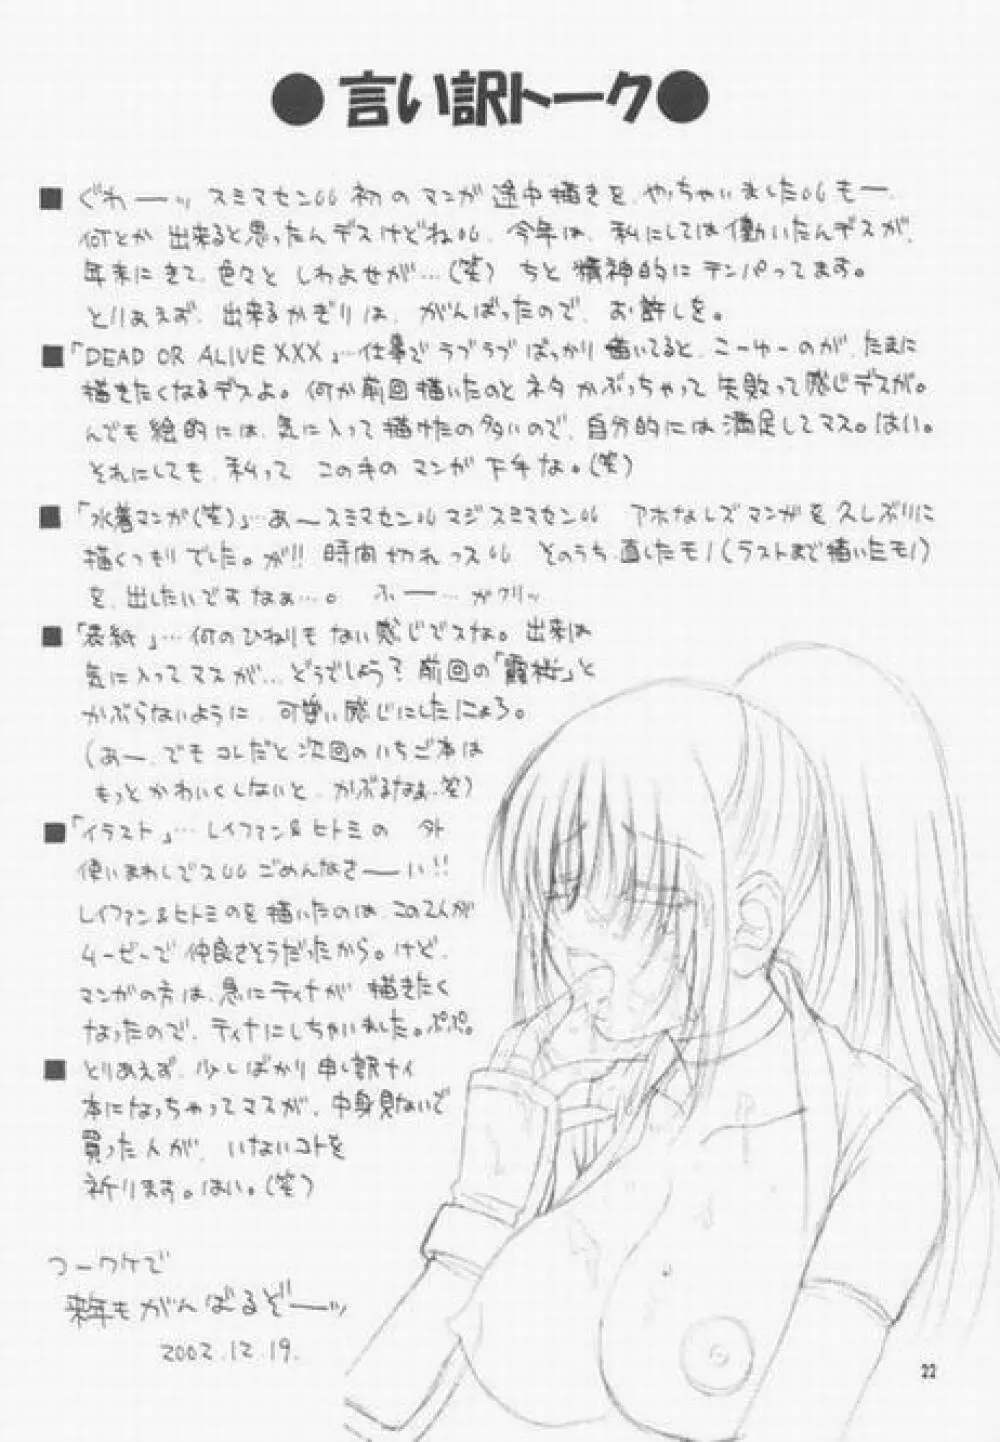 ●言い訳トーク●
■ぐわーッ スミマセン〇〇 初のマンガ途中描きを、やっちゃいました〇〇もー、
何とか出来ると思ったんデスけどね〇〇、今年は、私にしては働いたんデスが、
年末にきて、色々と しわよせが…(笑) ちと精神的にテンパってます。
とりあえず、出来るかぎりは、がんばったので、お許しを。
■「DEAD OR ALIVE XXX」…仕事でラブラブばっかり描いてると、こーゆーのが、たまに
描きたくなるデスよ。何か前回描いたのとネタかぶっちゃって失敗って感じデスが。
んでも絵的には、気に入って描けたの多いので、自分的には満足してマス。はい。
それにしても、私って この手のマンガ下手な。(笑)
■「水着マンガ(笑)」…あ〜スミマセン〇〇マジスミマセン〇〇 アホなレズマンガを久しぶりに
描くつもりでした。が!! 時間切れっス〇〇 そのうち直したモノ(ラストまで描いたモノ)
を、出したいですなぁ…。 ふー…ガクリッ
■「表紙」…何のひねりもない感じでスな。出来は
気に入ってマスが…どうでしょう?前回の「霞桜」と
かぶらないように、可愛い感じにしたにょろ。
(あー、でもコレだと次回のいちご本は
もっとかわいくしないと、かぶるなぁ、笑)
■「イラスト」…レイファン&ヒトミの 外
使いまわしでス〇〇ごめんなさーい!!
レイファン&ヒトミのを描いたのは、この2人が
ムービーで仲良さそうだったから。けど、
マンガの方は、急にティナが 描きたく
なったので、ティナにしちゃいました。ぷぷ。
■とりあえず、少しばかり申し訳ナイ
本になっちゃってマスが、中身見ないで
買った人が、いないコトを
祈ります。はい。(笑)
つーワケで
来年もがんばるぞーッ
2002.12.19.
22